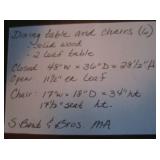 Dining table and chairs (6)
- Solid wood
- 2 leaf table
Closed 48" W x 36" D x 28½" ht
Open 11⅞" ea leaf
Chair: 17" W x 18" D x 34" ht
17½" seat ht.
S Bent & Bros. MA